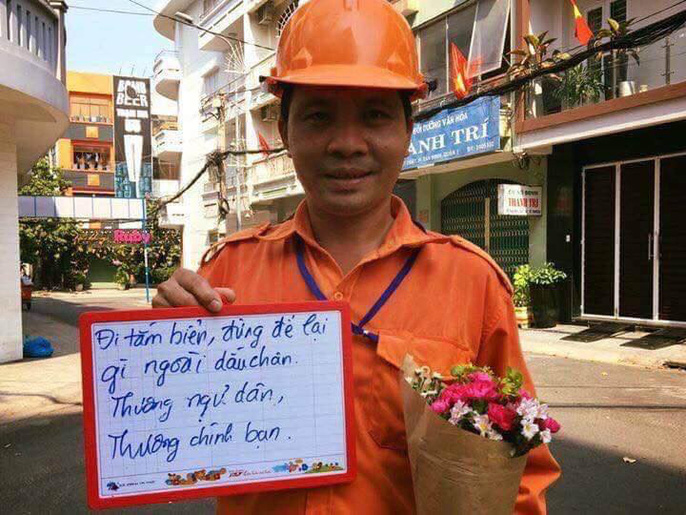 BEER
ANH TRÍ
THANH TRÍ
Ruby
Đi tắm biển, đừng để lại
gì ngoài dấu chân.
Thương ngư dân,
Thương chính bạn.